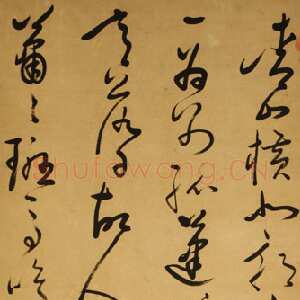 青山橫北郭
一為別孤蓬
意落日故人
蕭々班馬鳴
shufawang.CN